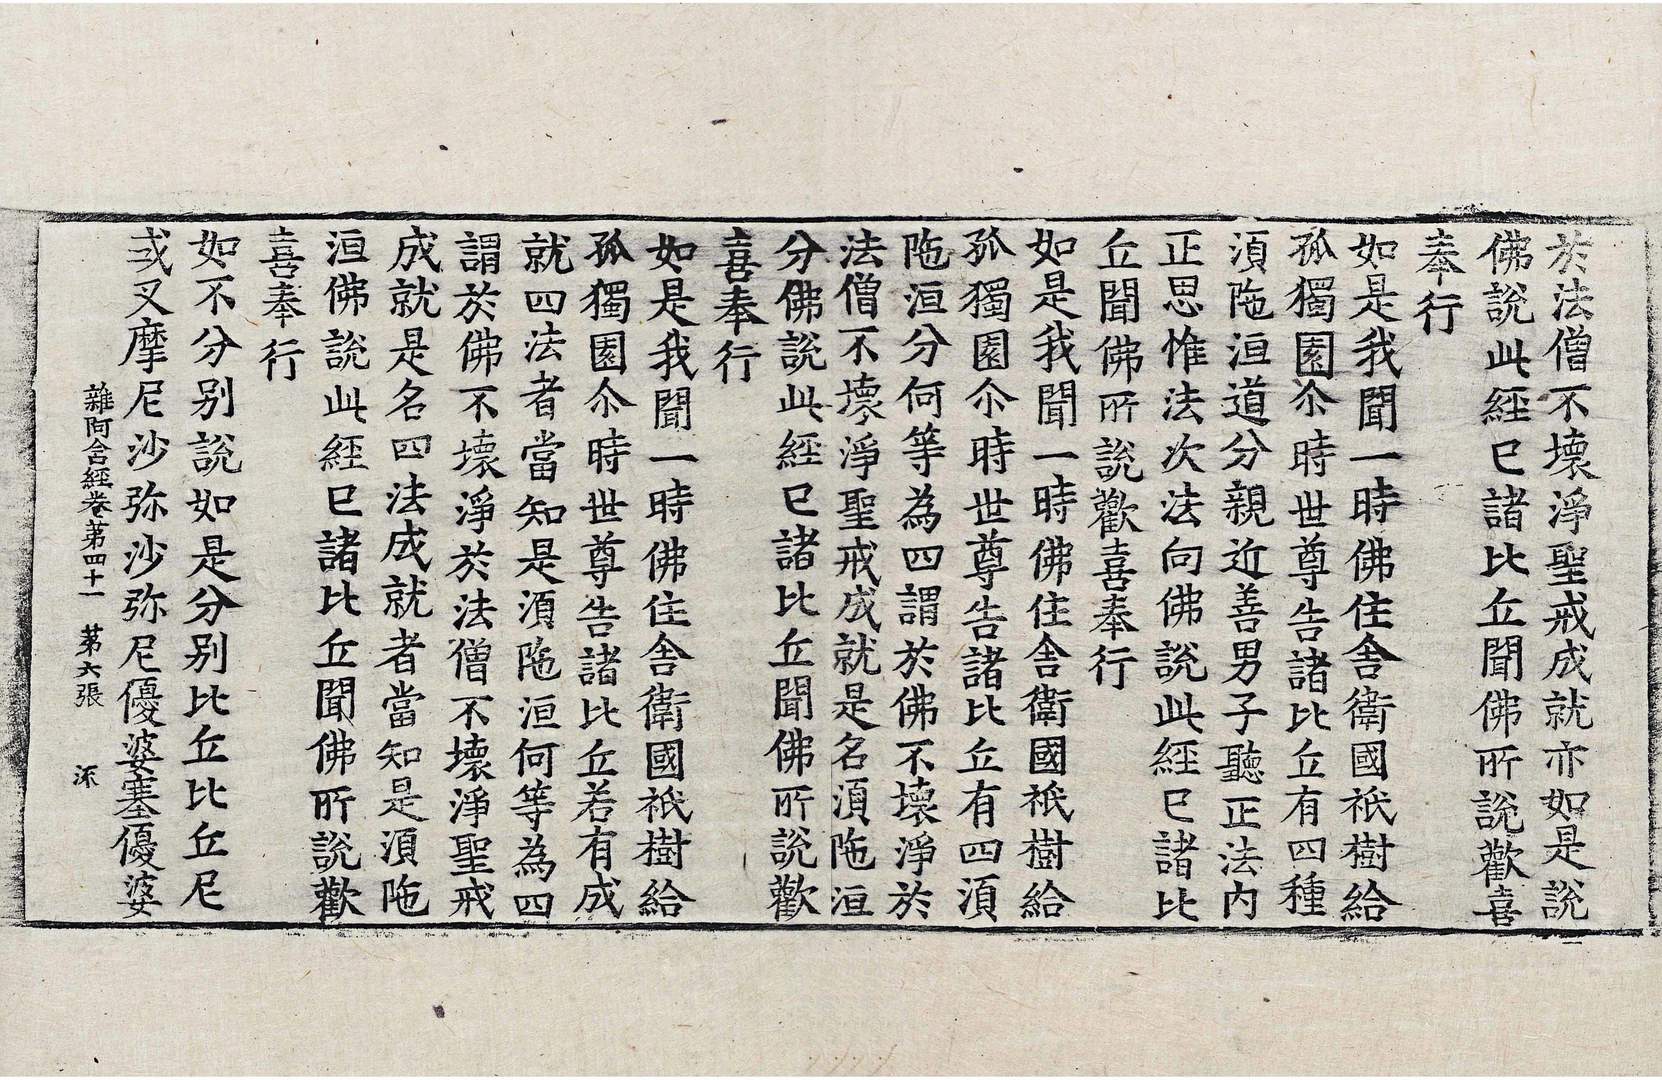 於法僧不壞淨聖戒成就亦如是說
佛說此經已諸比丘聞佛所說歡喜
奉行
如是我聞一時佛住舍衛國祇樹給
孤獨園尒時世尊告諸比丘有四種
須陁洹道分親近善男子聽正法內
正思惟法次法向佛說此經已諸比
丘聞佛所說歡喜奉行
如是我聞一時佛住舍衛國祇樹給
孤獨園尒時世尊告諸比丘有四須
陁洹分何等為四謂於佛不壞淨於
法僧不壞淨聖戒成就是名須陁洹
分佛說此經已諸比丘聞佛所說歡
喜奉行
如是我聞一時佛住舍衛國祇樹給
孤獨園尒時世尊告諸比丘若有成
就四法者當知是須陁洹何等為四
謂於佛不壞淨於法僧不壞淨聖戒
成就是名四法成就者當知是須陁
洹佛說此經已諸比丘聞佛所說歡
喜奉行
如不分别說如是分别比丘比丘尼
式叉摩尼沙弥沙弥尼優婆塞優婆
雜阿含經卷苐四十一 苐六張 流